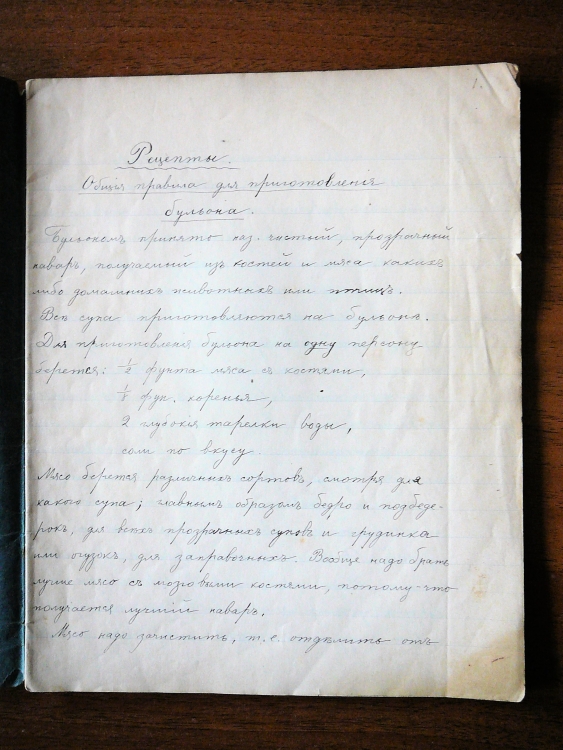 1.
Рецепты.
Общія правила для приготовленія
бульона.
Бульономъ принято наз. чистый, прозрачный
наваръ, получаемый изъ костей и мяса какихъ
либо домашнихъ животныхъ или птицъ.
Всѣ супа приготовляются на бульонѣ.
Для приготовленія бульона на одну персону
берется: 1/2 фунта мяса съ костями,
1/8 фун. коренья,
2 глубокія тарелки воды,
соли по вкусу.
Мясо берется различныхъ сортовъ, смотря для
какого супа; главнымъ образомъ бедро и подбеде-
рокъ, для всѣхъ прозрачныхъ суповъ и грудинка
или огузокъ, для заправочныхъ. Вообще надо брать
лучше мясо съ мозговыми костями, потому-что
получается лучшій наваръ.
Мясо надо зачистить, т.е. отдѣлить отъ